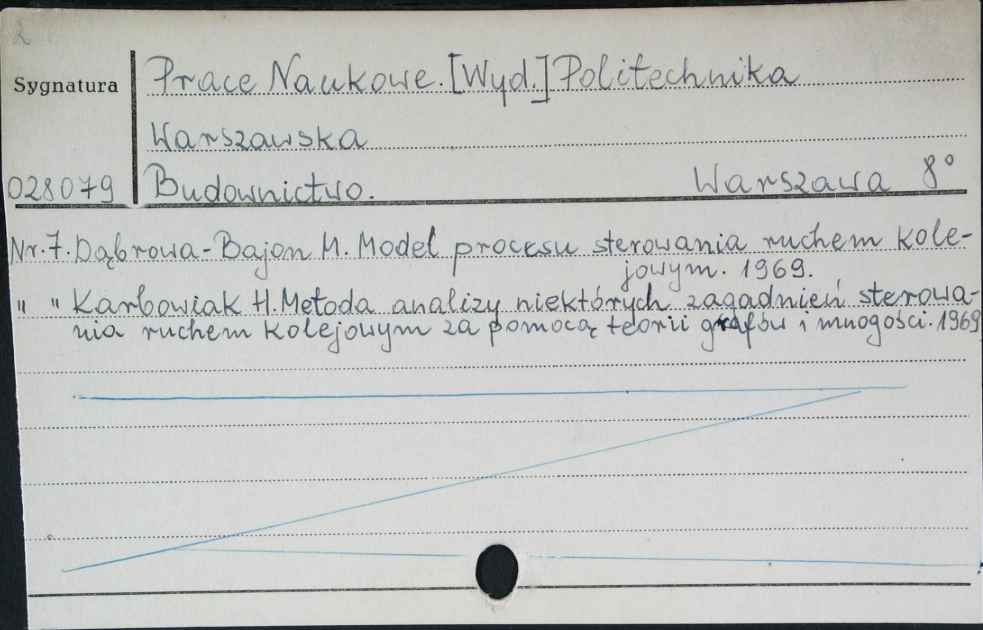 2
Sygnatura
Prace Naukowe. [Wyd.] Politechnika
Warszawska
028079
Budownictwo. Warszawa 8°
Nr. 7. Dąbrowa-Bajon M. Model procesu sterowania ruchem kole-
jowym. 1969.
" " Karbowiak H. Metoda analizy niektórych zagadnień sterowa-
nia ruchem kolejowym za pomocą teorii grafów i mnogości. 1969